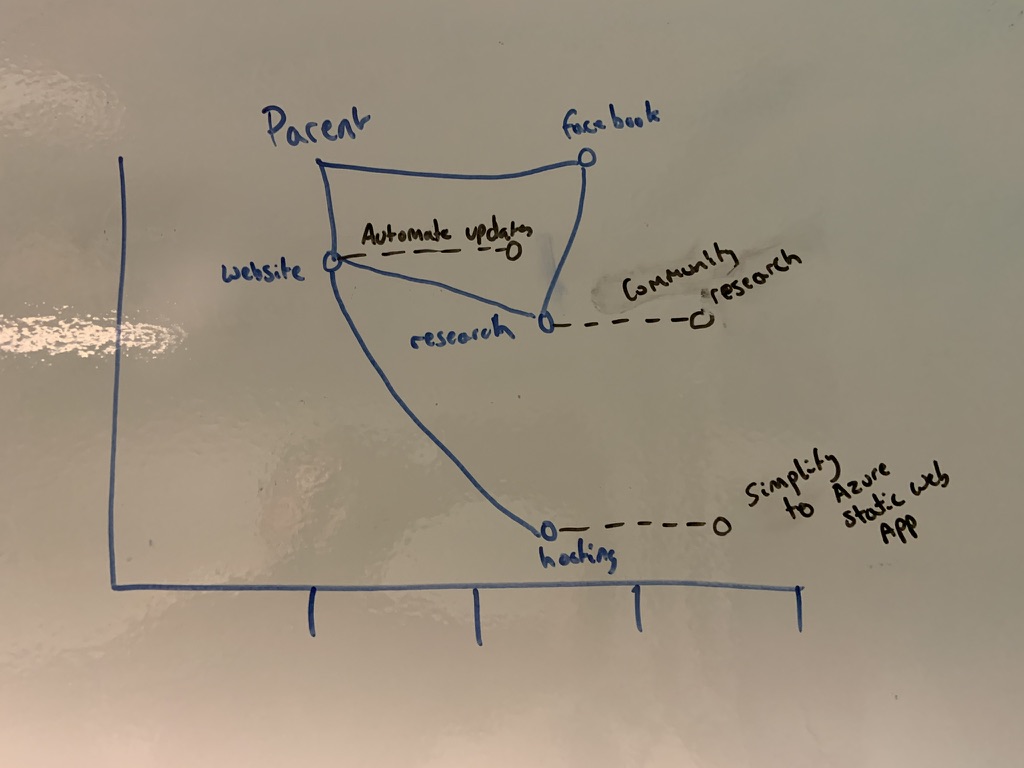 Parent
facebook
Automate updates
website
Community
research
research
Simplify
to Azure
static web
APP
hosting